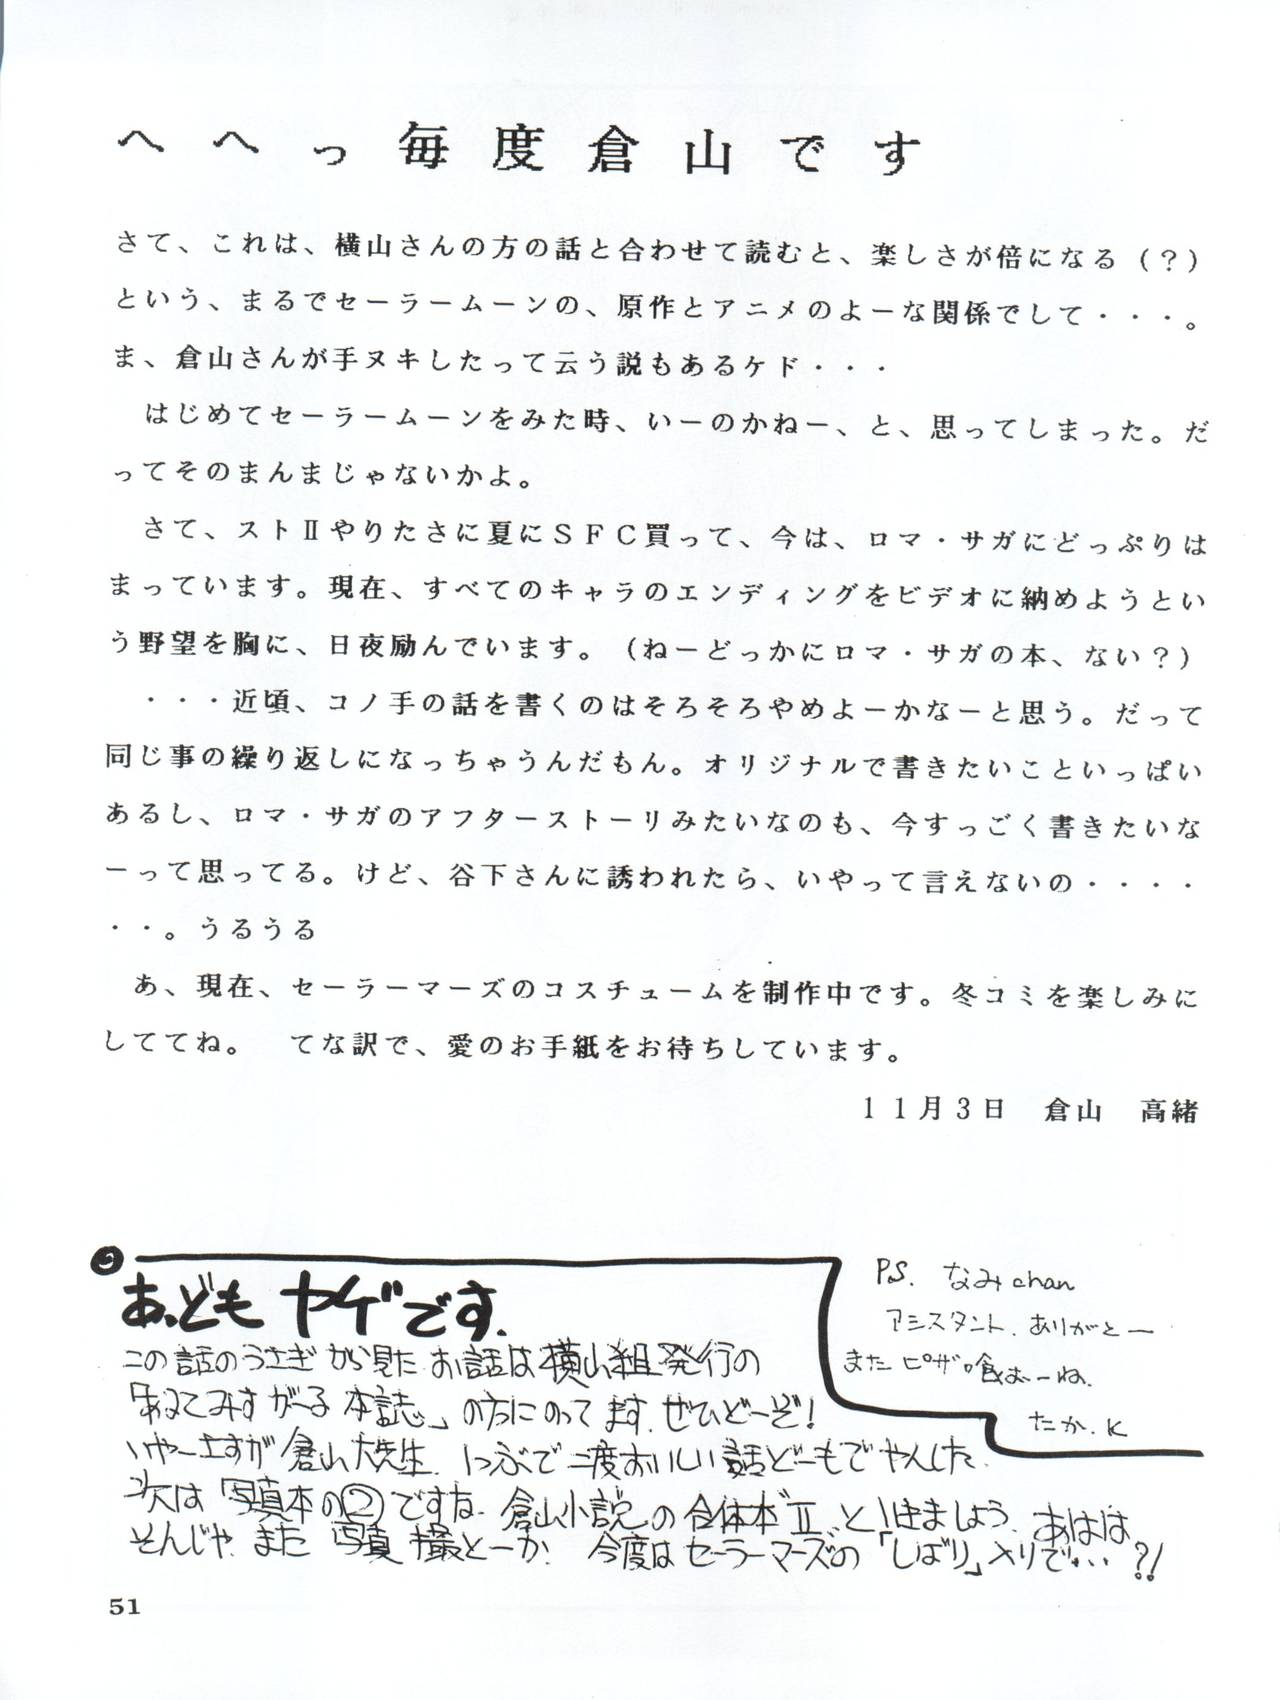 へへっ毎度倉山です
さて、これは、横山さんの方の話と合わせて読むと、楽しさが倍になる（？）
という、まるでセーラームーンの、原作とアニメのよーな関係でして・・・。
ま、倉山さんが手ヌキしたって云う説もあるケド・・・
はじめてセーラームーンをみた時、いーのかねー、と、思ってしまった。だ
ってそのまんまじゃないかよ。
さて、ストⅡやりたさに夏にＳＦＣ買って、今は、ロマ・サガにどっぷりは
まっています。現在、すべてのキャラのエンディングをビデオに納めようとい
う野望を胸に、日夜励んでいます。（ねーどっかにロマ・サガの本、ない？）
・・・近頃、コノ手の話を書くのはそろそろやめよーかなーと思う。だって
同じ事の繰り返しになっちゃうんだもん。オリジナルで書きたいこといっぱい
あるし、ロマ・サガのアフターストーリみたいなのも、今すっごく書きたいな
ーって思ってる。けど、谷下さんに誘われたら、いやって言えないの・・・・
・・。うるうる
あ、現在、セーラーマーズのコスチュームを制作中です。冬コミを楽しみに
しててね。　てな訳で、愛のお手紙をお待ちしています。
１１月３日　倉山　高緒
あ、ども ヤゲです.
この話のうさぎから見たお話は横山組発行の
「あねてみすがーる 本誌」の方にのってます.ぜひどーぞ!
いやーさすが倉山大先生. 1つぶで二度おいしい話どーもでやんした.
次は「写真本の②」ですな. 倉山小説の合体本"Ⅱ"といきましょう. あはは
そんじゃ. また 写真 撮とーか. 今度はセーラーマーズの「しばり」メリで・・・?!
P.S. なみchan
アシスタント. ありがとー
また ピザ喰おーね.
たか.K
51